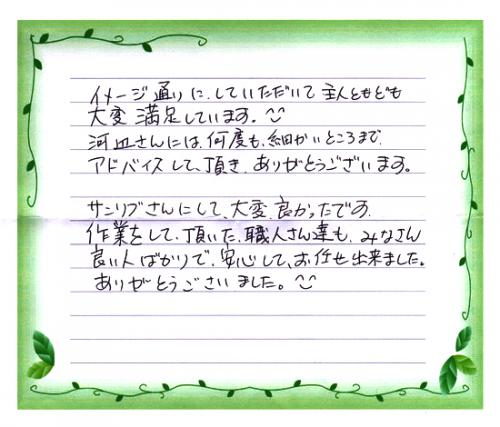 イメージ通りに、していただいて 主人ともども
大変 満足しています。
河辺さんには、何度も、細かいところまで、
アドバイスして、頂き、ありがとうございます。
サンリブさんにして、大変、良かったです。
作業をして、頂いた、職人さん達も、みなさん
良い人ばかりで、安心して、お任せ出来ました。
ありがとうございました。